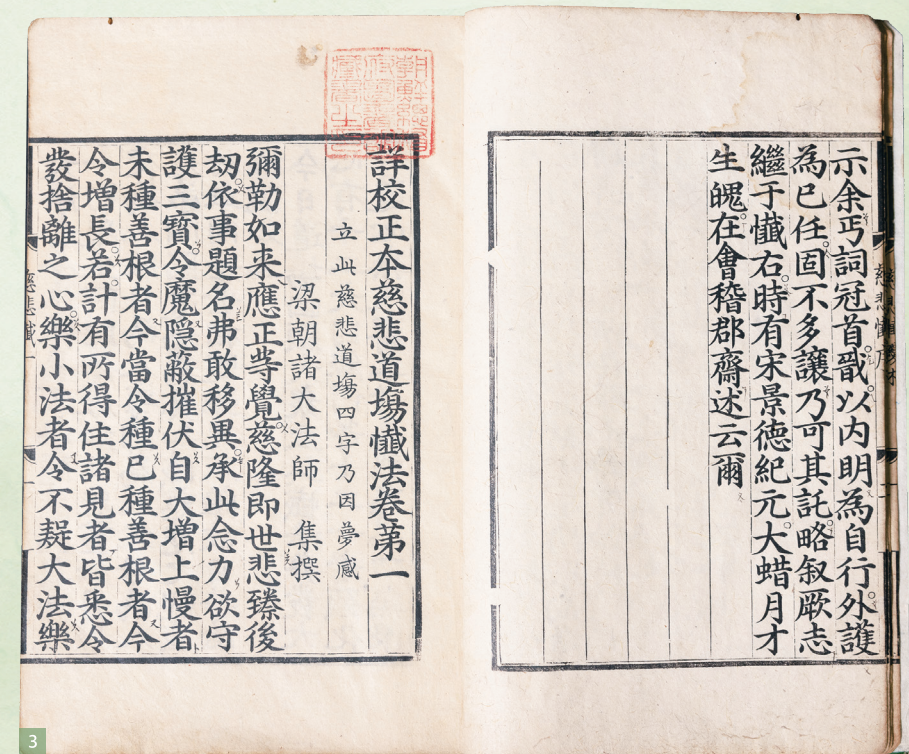 示余丐詞冠首戩以内明為自行外護
為己任固不多讓乃可其託略叙厥志
繼于懺右時有宋景德紀元大蜡月才
生魄在會稽郡齋述云爾
詳校正本慈悲道塲懺法卷苐一
立此慈悲道塲四字乃因夢感
梁朝諸大法師 集撰
彌勒如来應正等覺慈隆即世悲臻後
刼依事題名弗敢移異承此念力欲守
護三寶令魔隠蔽摧伏自大増上慢者
未種善根者今當令種已種善根者今
令増長若計有所得住諸見者皆悉令
發捨離之心樂小法者令不疑大法樂
慈悲懺一
3